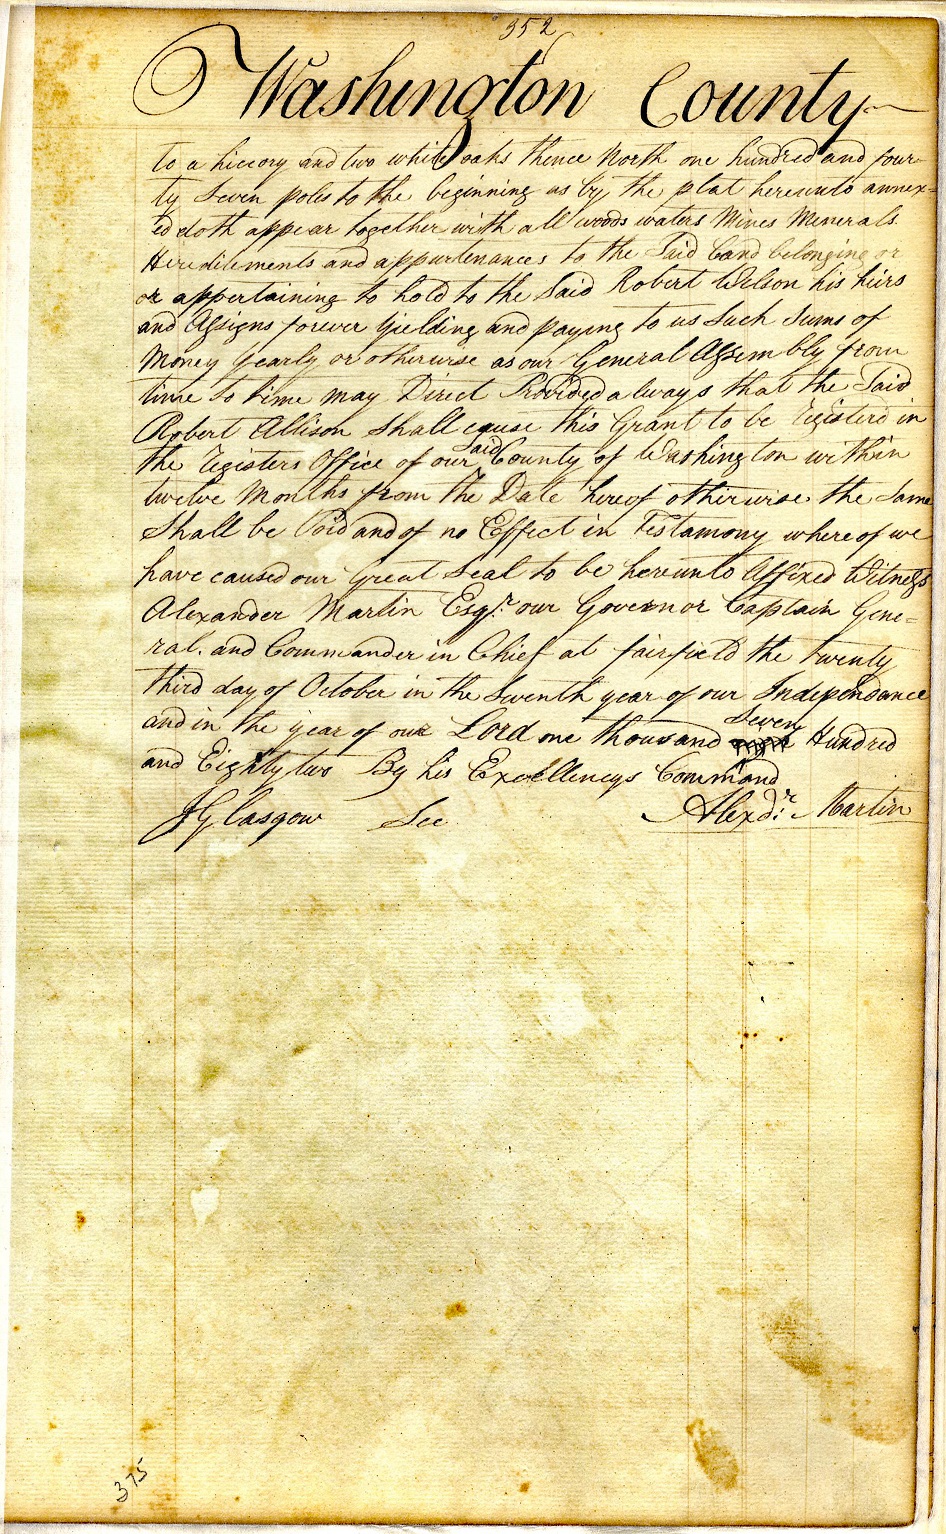 352
Washington County
to a hiccory and two white oaks thence North one hundred and four-
ty Seven poles to the beginning as by the plat hereunto annex=
ed doth appear together with all woods waters Mines Minerals
Hereditements and appurtenances to the Said Land belonging or
or appertaining to hold to the Said Robert Wilson his heirs
and Assigns forever Yielding and paying to us Such Sums of
Money yearly or otherwise as our General Assembly from
time to time may Direct Provided always that the Said
Robert Allison Shall cause this Grant to be Registerd in
the Registers Office of our Said County of Washington within
twelve Months from the Date hereof otherwise the Same
Shall be Void and of no Effect in Testamony whereof we
have caused our Great Seal to be hereunto Affixed Witness
Alexander Martin Esqr. our Governor Captain Gene=
ral. and Commander in Chief at fairfield the twenty
third day of October in the Seventh year of our Independance
and in the year of our Lord one thousand Seven Hundred
and Eighty two By his Excellencys Command
J Glasgow Sec Alexdr. Martin
375